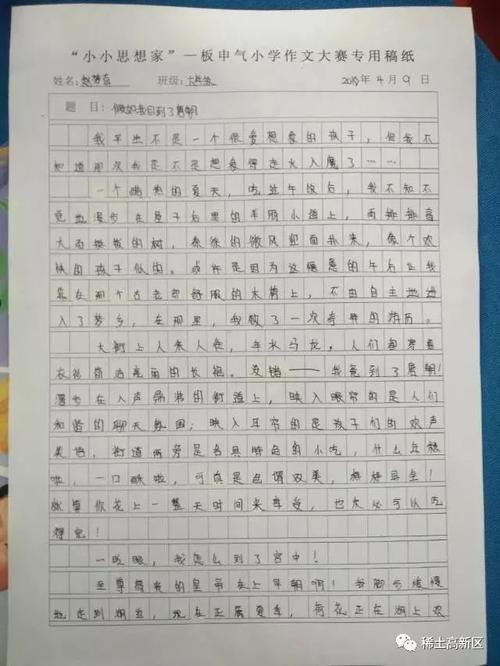 “小小思想家”—板申气小学作文大赛专用稿纸
姓名: 班级: 2019年4月9日
题目: 假如我回到了唐朝
我平生不是一个很爱想象的孩子,但我不
知道那次我是不是想象得走火入魔了……
一个炎热的夏天,吃过午饭后,我不知不
觉地漫步在屋子后里的羊肠小道上,两排排高
大而挺拔的树,徐徐的微风迎面扑来,像个欢
快的孩子似的。或许是因为这惬意的午后让我
靠在那个古老却舒服的木椅上,不由自主地进
入了梦乡,在那里,我做了一次奇异的经历。
大街上人来人往,车水马龙,人们都穿着
衣衫简洁亮丽的长袍。没错——我来到了唐朝!
漫步在人声鼎沸的街道上,映入眼帘的是人们
和谐的聊天氛围;映入耳帘的是孩子们的欢声
笑语,街道两旁是各具特色的小吃,什么豆糕
啦,一口酥啦,可真是色谓双美,样样具全!
就算你花上一整天时间来享受,也未必可以吃
得完!
一眨眼,我怎么到了宫中!
至尊尊贵的皇帝在上早朝啊!我脚步缓慢
地走到湖边,现在正属夏季,荷花正在湖上欢
稀土高新区